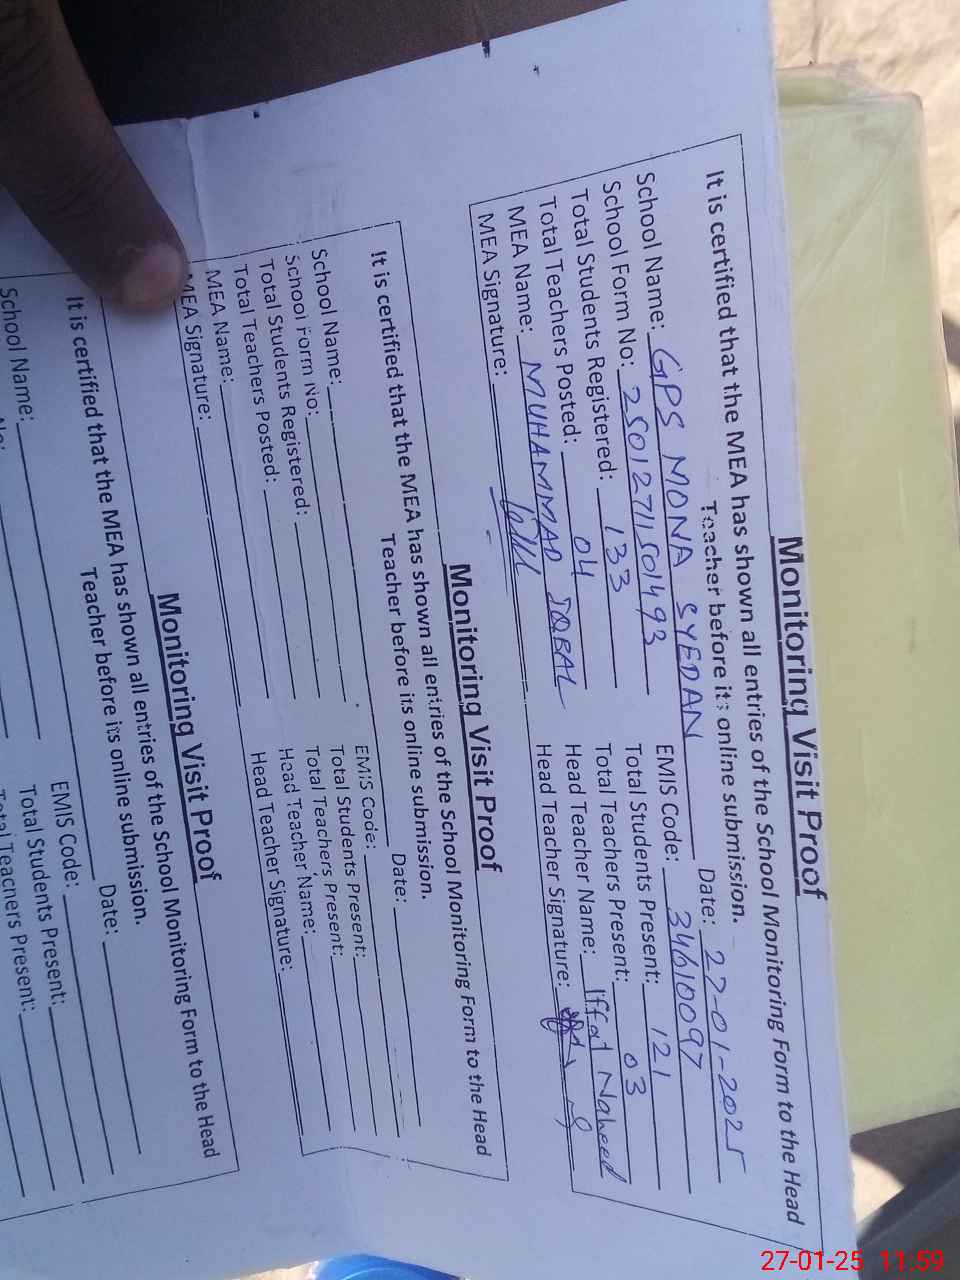 Monitoring Visit Proof
It is certified that the MEA has shown all entries of the School Monitoring Form to the Head
Teacher before its online submission.
School Name: GPS MONA SYEDAN Date: 27-01-2025
School Form No: 25012711501493 EMIS Code: 34610097
Total Students Registered: 133 Total Students Present: 121
Total Teachers Posted: 04 Total Teachers Present: 03
MEA Name: MUHAMMAD IQBAL Head Teacher Name: Iffat Naheed
MEA Signature: Head Teacher Signature:
Monitoring Visit Proof
It is certified that the MEA has shown all entries of the School Monitoring Form to the Head
Teacher before its online submission.
School Name: Date:
School Form No: EMIS Code:
Total Students Registered: Total Students Present:
Total Teachers Posted: Total Teachers Present:
MEA Name: Head Teacher Name:
MEA Signature: Head Teacher Signature:
Monitoring Visit Proof
It is certified that the MEA has shown all entries of the School Monitoring Form to the Head
Teacher before its online submission.
School Name: Date:
No: EMIS Code:
Total Students Present:
Total Teachers Present:
27-01-25 11:59